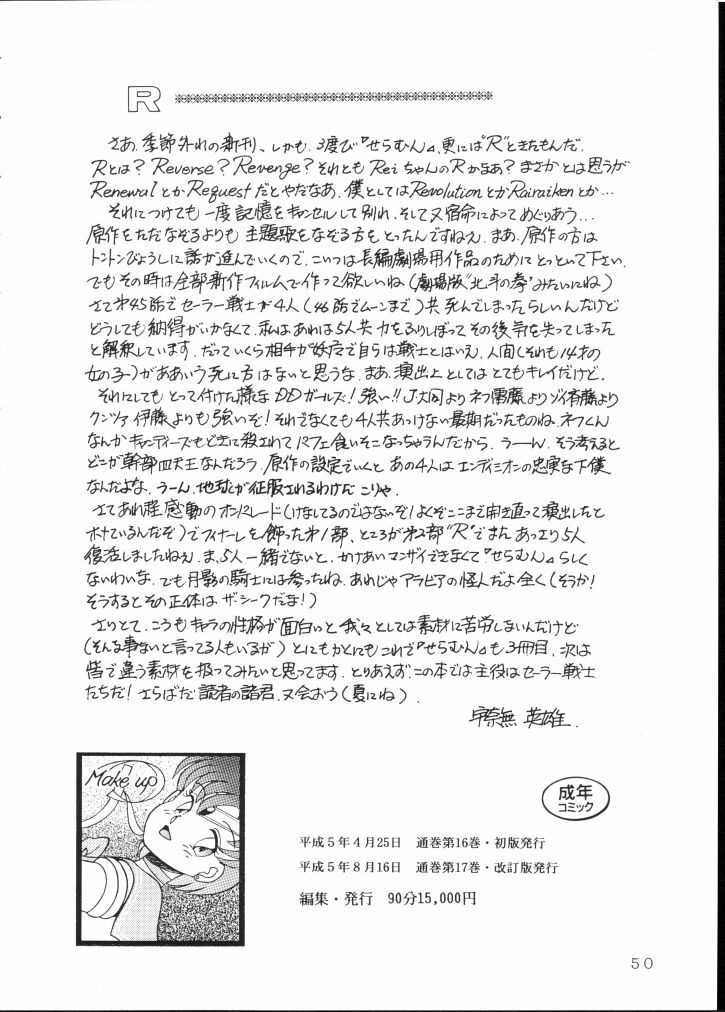 R
さあ、季節外れの新刊、しかも、3度び『せらむん』、更には"R"ときたもんだ。
Rとは?Reverse?Revenge?それともReiちゃんのRかなあ?まさかとは思うが
RenewalとかRequestだとやだなあ。僕としてはRevolutionとかRairaikenとか…
それにつけても一度記憶をキャンセルして別れ、そして又宿命によってめぐりあう…
原作をただなぞるよりも主題歌をなぞる方をとったんですねえ。まあ、原作の方は
トントンびょうしに話が進んでいくので、こいつは長編劇場用作品のためにとっといて下さい。
でもその時は全部新作フィルムで作って欲しいね(劇場版"北斗の拳"みたいにね)
さて第45話でセーラー戦士が4人(46話でムーンまで)共死んでしまったらしいんだけど
どうしても納得がいかなくて、私はあれは5人共力をふりしぼってその後気を失ってしまった
と解釈しています。だっていくら相手が妖魔で自らは戦士とはいえ、人間(それも14才の
女の子)がああいう死に方はないと思うな。まあ、演出上としてはとてもキレイだけど。
それにしてもとって付けた様なDDガールズ!強い!!J大同よりネフ雷藤よりゾイ斉藤より
クンツァ伊藤よりも強いぞ!それでなくても4人共あっけない最期だったものね。ネフくん
なんかキャンディーズもどきに殺されてパフェ食いそこなっちゃうんだから。うーん、そう考えると
どこが幹部四天王なんだろう。原作の設定でいくとあの4人はエンディミオンの忠実な下僕
なんだよな、うーん、地球が征服されるわけだこりゃ。
さてあれ程感動のオンパレード(けなしてるのではないぞ!よくぞここまで開き直って演出したと
ホメているんだぞ)でフィナーレを飾った第1部、ところが第2部"R"でまたあっさり5人
復活しましたねえ。ま、5人一緒でないと、かけあいマンザイできなくて『せらむん』らしく
ないわいな。でも月影の騎士には参ったね。あれじゃアラビアの怪人だよ全く(そうか!
そうするとその正体はザ・シークだな!)
さりとて、こうもキャラの性格が面白いと我々としては素材に苦労しないんだけど
(そんな事ないと言ってる人もいるが)とにもかくにもこれで『せらむん』も3冊目、次は
皆で違う素材を扱ってみたいと思ってます。とりあえず、この本では主役はセーラー戦士
たちだ!さらばだ読者の諸君、又会おう(夏にね)
宇奈無 英雄
Make up
成年
コミック
平成5年4月25日 通巻第16巻・初版発行
平成5年8月16日 通巻第17巻・改訂版発行
編集・発行 90分15,000円
50